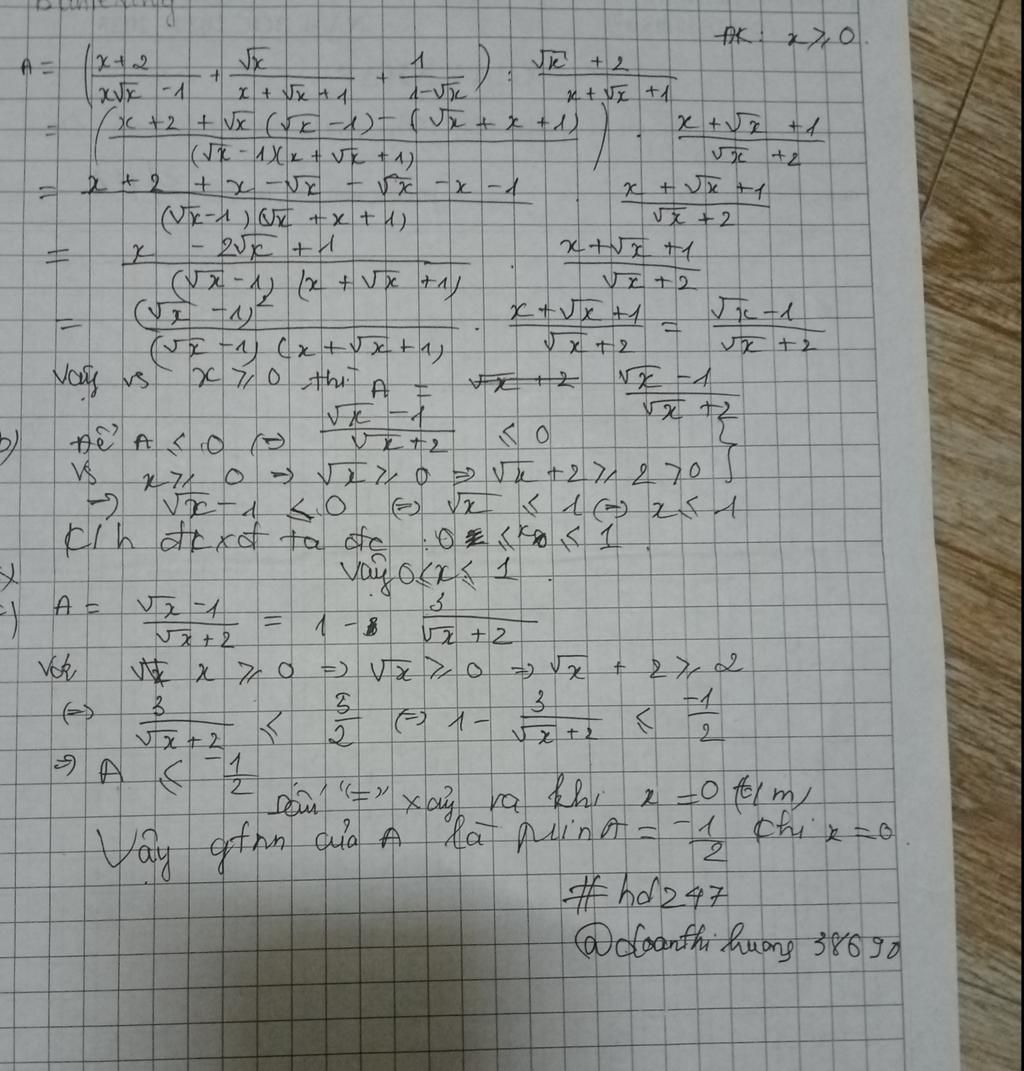 ĐK: x ≥ 0
A = ( (x+2)/(x√x -1) + √x/(x+√x+1) + 1/(1-√x) ) : (√x +2)/(x+√x+1)
= ( (x+2+√x(√x-1)-(√x+x+1))/((√x-1)(x+√x+1)) ) . (x+√x+1)/(√x+2)
= (x+2+x-√x-√x-x-1)/((√x-1)(√x+x+1)) . (x+√x+1)/(√x+2)
= (x -2√x+1)/((√x-1)(x+√x+1)) . (x+√x+1)/(√x+2)
= (√x-1)²/((√x-1)(x+√x+1)) . (x+√x+1)/(√x+2) = (√x-1)/(√x+2)
Vậy vs x ≥ 0 thì A = (√x-1)/(√x+2)
b) Để A ≤ 0 <=> (√x-1)/(√x+2) ≤ 0
Vs x ≥ 0 => √x ≥ 0 => √x+2 ≥ 2 > 0 }
=> √x-1 ≤ 0 <=> √x ≤ 1 <=> x ≤ 1
K/h đkxđ ta đc : 0 ≤ x ≤ 1
Vậy 0 ≤ x ≤ 1
c) A = (√x-1)/(√x+2) = 1 - 3/(√x+2)
Với x ≥ 0 => √x ≥ 0 => √x + 2 ≥ 2
<=> 3/(√x+2) ≤ 3/2 <=> 1 - 3/(√x+2) ≤ -1/2
=> A ≤ -1/2
Dấu "=" xảy ra khi x = 0 (t/m)
Vậy gtnn của A là Min A = -1/2 khi x = 0
# hd247
@doanthihuong38690